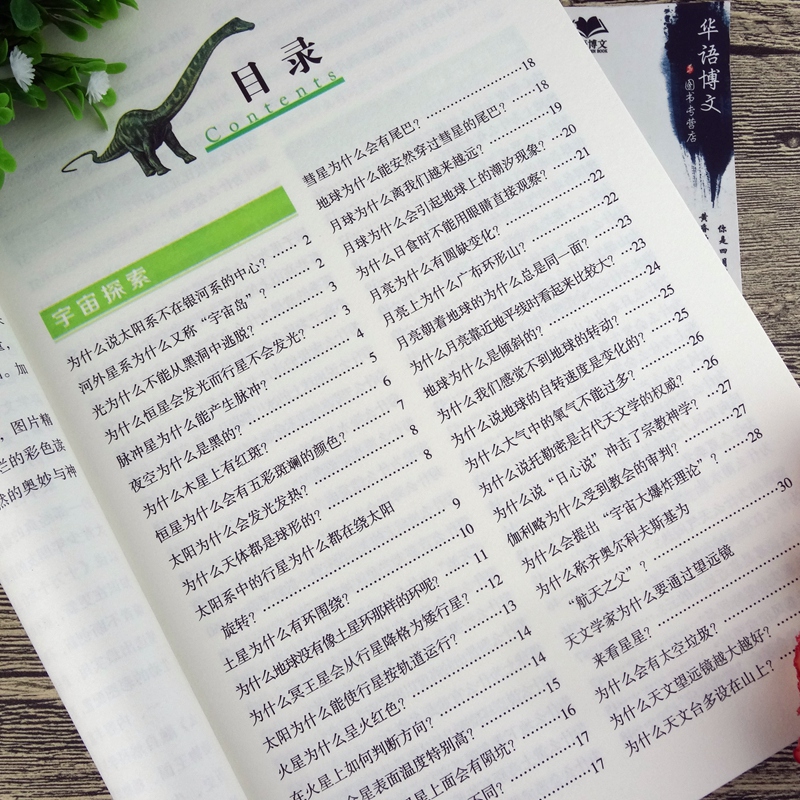 目录
Contents
宇宙探索
为什么说太阳系不在银河系的中心? …… 2
河外星系为什么又称“宇宙岛”? …… 2
光为什么不能从黑洞中逃脱? …… 3
为什么恒星会发光而行星不会发光? …… 3
脉冲星为什么能产生脉冲? …… 4
夜空为什么是黑的? …… 5
为什么木星上有红斑? …… 6
恒星为什么会有五彩斑斓的颜色? …… 7
太阳为什么会发光发热? …… 8
为什么天体都是球形的? …… 8
太阳系中的行星为什么都在绕太阳
旋转? …… 9
土星为什么有环围绕? …… 10
为什么地球没有像土星环那样的环呢? …… 11
为什么冥王星会从行星降格为矮行星? …… 12
太阳为什么能使行星按轨道运行? …… 13
火星为什么呈火红色? …… 14
在火星上如何判断方向? …… 14
金星表面温度特别高? …… 15
星上面会有陨坑? …… 16
不同? …… 17
17
彗星为什么会有尾巴? …… 18
地球为什么能安然穿过彗星的尾巴? …… 18
月球为什么离我们越来越远? …… 19
月球为什么会引起地球上的潮汐现象? …… 20
为什么日食时不能用眼睛直接观察? …… 21
月亮为什么有圆缺变化? …… 22
月亮上为什么广布环形山? …… 22
月亮朝着地球的为什么总是同一面? …… 23
为什么月亮靠近地平线时看起来比较大? …… 23
地球为什么是倾斜的? …… 24
为什么我们感觉不到地球的转动? …… 25
为什么说地球的自转速度是变化的? …… 25
为什么大气中的氧气不能过多? …… 26
为什么说托勒密是古代天文学的权威? …… 26
为什么说“日心说”冲击了宗教神学? …… 27
伽利略为什么受到教会的审判? …… 27
为什么会提出“宇宙大爆炸理论”? …… 28
为什么称齐奥尔科夫斯基为
“航天之父”? …… 30
天文学家为什么要通过望远镜
来看星星? ……
为什么会有太空垃圾? ……
为什么天文望远镜越大越好? ……
为什么天文台多设在山上? ……
。加
，图片精
兰的彩色读
然的奥妙与神
博文
华语博文
图书专营店
你是四